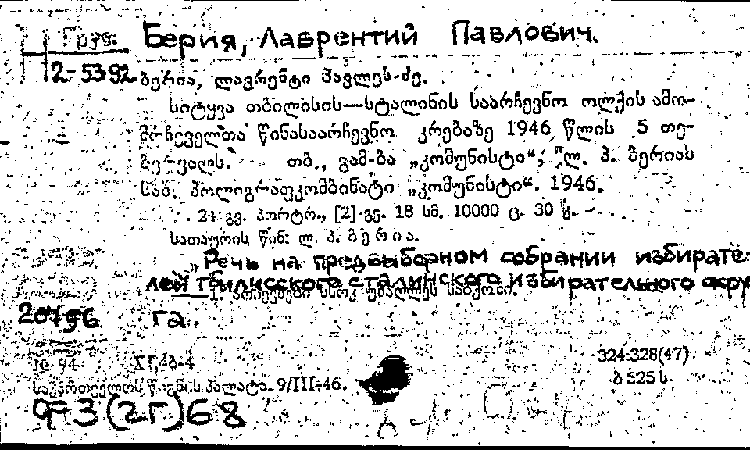 Груз. Берия, Лаврентий Павлович.
2-5392 ბერია, ლავრენტი პავლეს-ძე.
სიტყვა თბილისის—სტალინის საარჩევნო ოლქის ამო-
მრჩეველთა წინასაარჩევნო კრებაზე 1946 წლის 5 თე-
ბერვალს. თბ., გამ-ბა „კომუნისტი“, ლ. პ. ბერიას
სახ. პოლიგრაფკომბინატი „კომუნისტი“. 1946.
21 გვ. პორტრ., [2] გვ. 18 სმ. 10000 ც. 30 კ.
სათაურის წინ: ლ. პ. ბერია.
„Речь на предвыборном собрании избирате-
лей тбилисского сталинского избирательного окру-
1. არჩევნები სსრკ უმაღლეს საბჭოში.
20796 га.
324:328(47)
ბ 525 ს
საქართველოს წ. პალატა. 9/III-46.
9-3(2Г)68